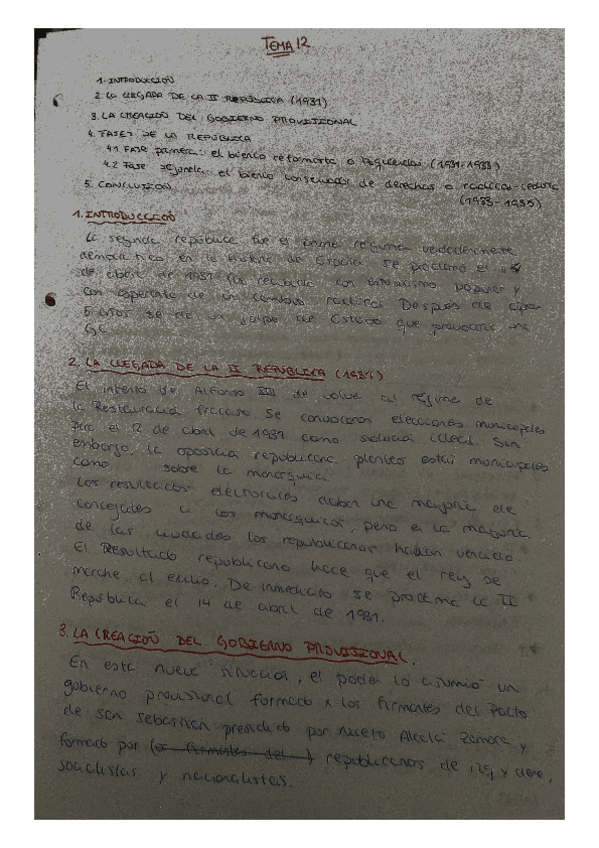 TEMA 12
1. INTRODUCCIÓN
2. LA LLEGADA DE LA II REPÚBLICA (1931)
3. LA CREACIÓN DEL GOBIERNO PROVISIONAL
4. FASES DE LA REPÚBLICA
4.1 Fase primera: el bienio reformista o izquierdas (1931-1933)
4.2 Fase segunda: el bienio conservador de derechas o radical-cedista
(1933-1935)
5. CONCLUSIÓN
1. INTRODUCCIÓN
La segunda república fue el primer régimen verdaderamente
democrático en la historia de España. Se proclamó el 14
de abril de 1931 fue recibida con entusiasmo popular y
con esperanza de un cambio radical. Después de
5 años se da un golpe de Estado que provocaría una
GC.
2. LA LLEGADA DE LA II REPÚBLICA (1931)
El intento de Alfonso XIII de volver al régimen de
la Restauración fracasó. Se convocaron elecciones municipales
para el 12 de abril de 1931 como solución ideal. Sin
embargo, la oposición republicana planteó estas municipales
como sobre la monarquía.
Los resultados electorales daban una mayoría de
concejales a los monárquicos, pero en la mayoría
de las ciudades los republicanos habían vencido.
El Resultado republicano hace que el rey se
marche al exilio. De inmediato se proclama la II
República el 14 de abril de 1931.
3. LA CREACIÓN DEL GOBIERNO PROVISIONAL.
En esta nueva situación, el poder lo asumió un
gobierno provisional formado x los firmantes del Pacto
de San Sebastián presidido por Niceto Alcalá Zamora y
formado por (o firmantes del ) republicanos de izq y dere,
socialistas y nacionalistas.